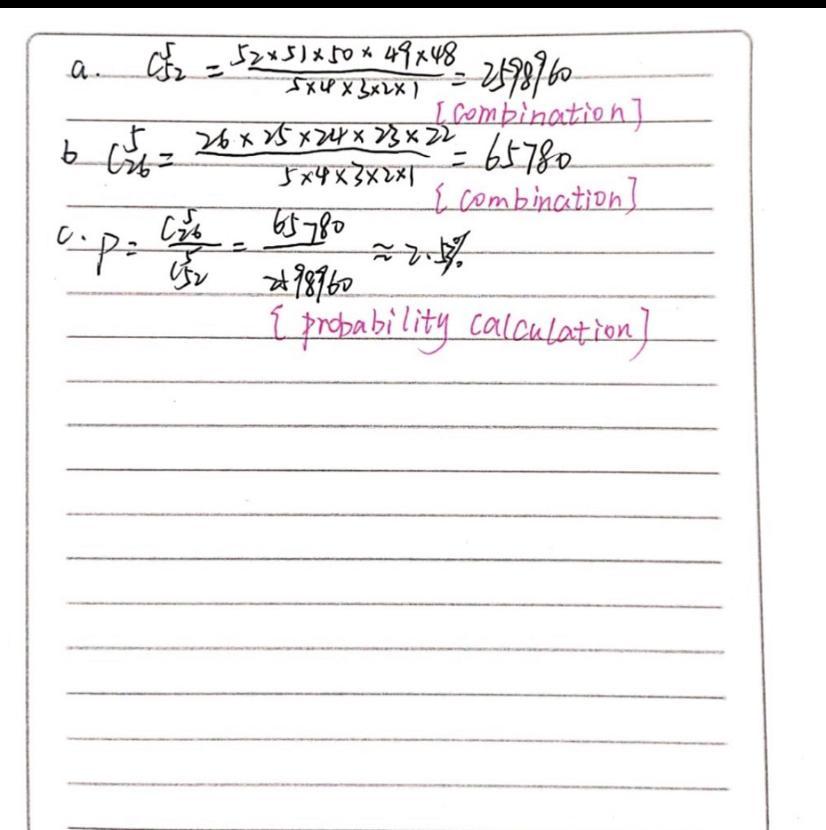 a. C⁵₅₂ = 52×51×50×49×48 / 5×4×3×2×1 = 2598960
[combination]
b C⁵₂₆ = 26×25×24×23×22 / 5×4×3×2×1 = 65780
[combination]
c. P = C⁵₂₆ / C⁵₅₂ = 65780 / 2598960 ≈ 2.5%
[probability calculation]